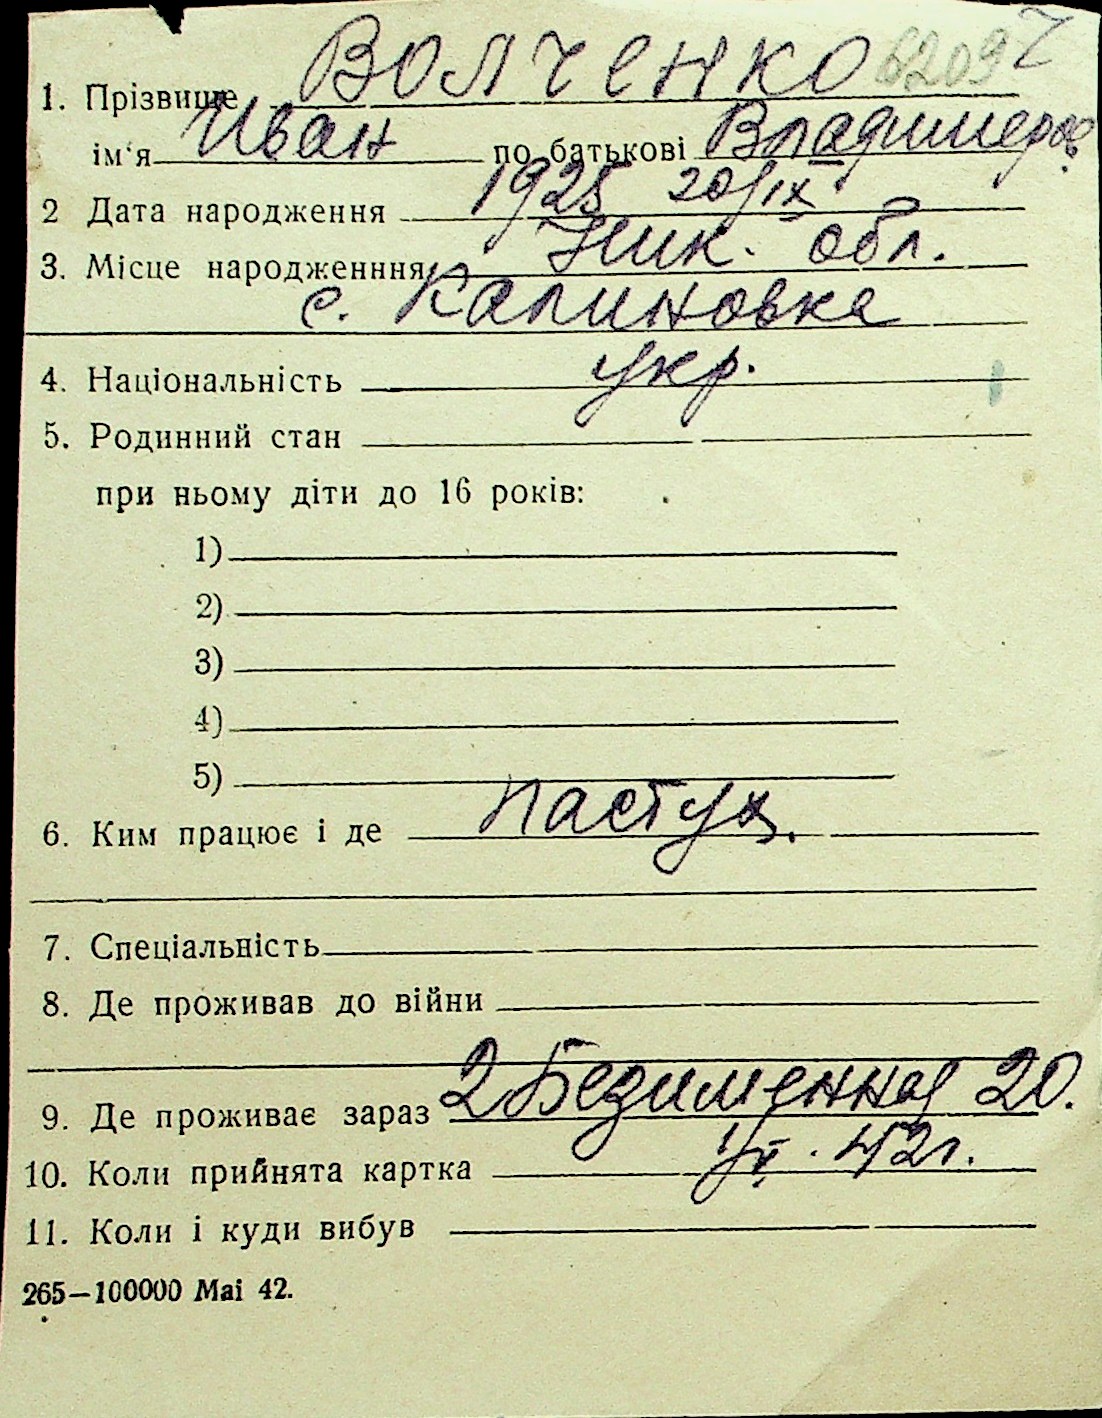 1. Прізвище Волченко 62097
ім'я Иван по батькові Владимиров.
2 Дата народження 1925 20/IX
3. Місце народженння Ник. обл.
с. Калиновка
4. Національність укр.
5. Родинний стан
при ньому діти до 16 років:
1)
2)
3)
4)
5)
6. Ким працює і де пастух.
7. Спеціальність
8. Де проживав до війни
9. Де проживає зараз 2 Безименная 20.
10. Коли прийнята картка 42г.
11. Коли і куди вибув
265—100000 Mai 42.